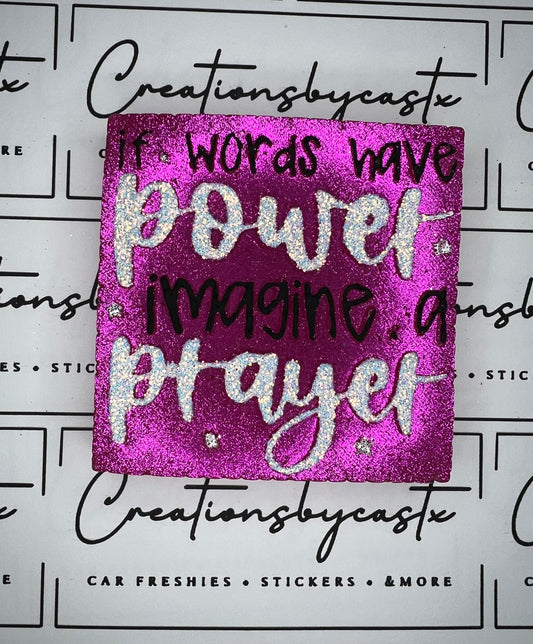 Creationsbycastx
RE
if words have
power
imagine a
prayer
ES • STIC
• STIC
Creationsbycastx
E
CAR FRESHIES • STICKERS • &MORE